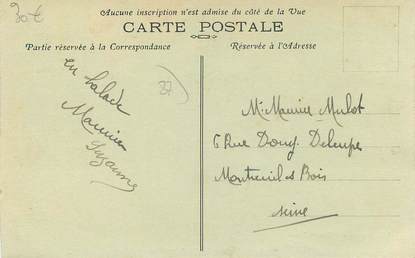 30€
Aucune inscription n'est admise du côté de la Vue
CARTE POSTALE
Partie réservée à la Correspondance
Réservée à l'Adresse
37
en balade
Maurice
Suzanne
Mr Maurice Mulot
6 Rue
Montreuil s Bois
Seine